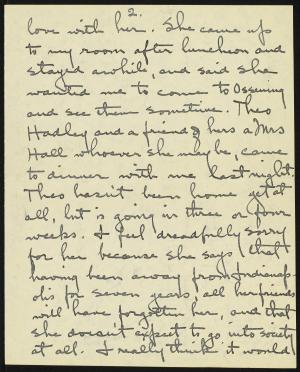 2.
love with her. She came up
to my room after luncheon and
stayed awhile, and said she
wanted me to come to Ossining
and see them sometime. Theo
Hadley and a friend of hers a Mrs
Hall whoever she may be, came
to dinner with me last night.
Theo hasn't been home yet at
all, but is going in three or four
weeks. I feel dreadfully sorry
for her because she says that
having been away from Indianap-
olis for seven years, all her friends
will have forgotten her, and that
she doesn't expect to go into society
at all. I really think it would